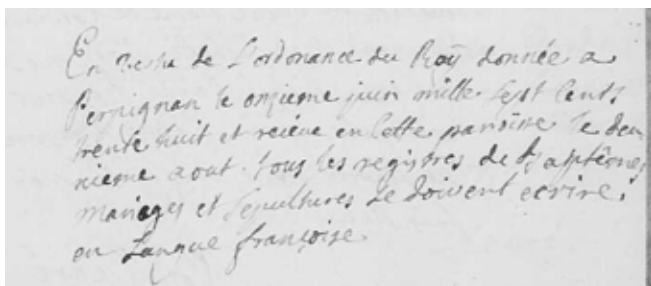 En vertu de L'ordonance du Roÿ donnée a
Perpignan le onzieme juin mille sept Cents
trente huit et recieüe en Cette paroisse le deu
xieme aout. tous les registres de Baptêmes
mariages et Sepultures se doivent ecrire.
en Langue françoise